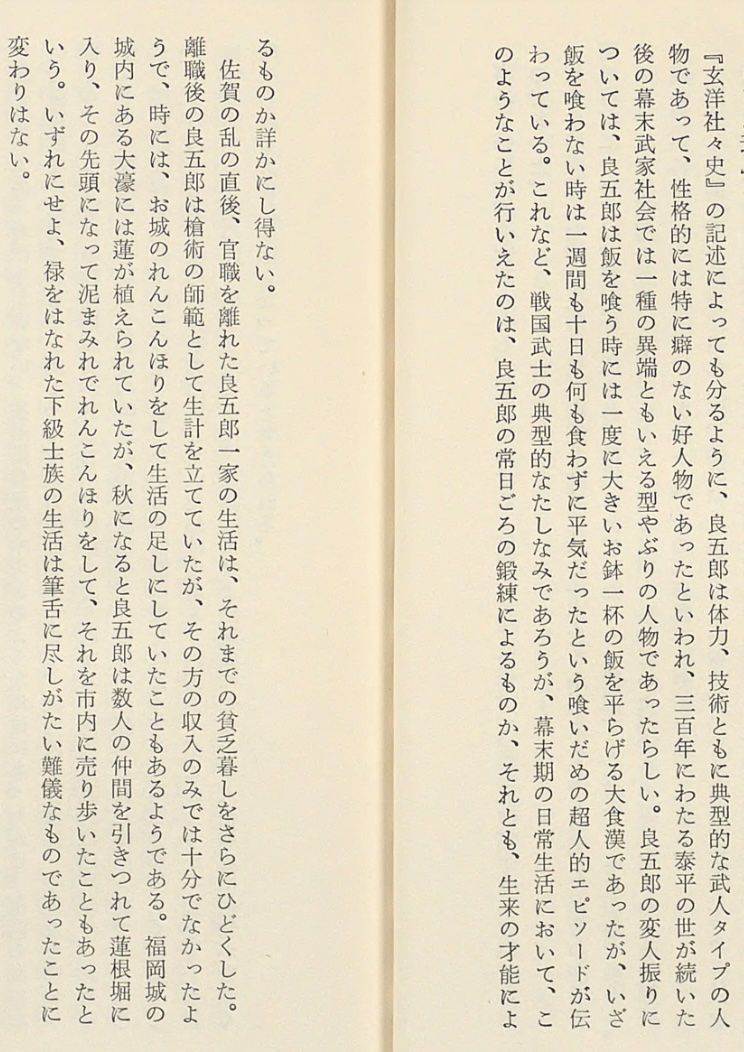 『玄洋社々史』の記述によっても分るように、良五郎は体力、技術ともに典型的な武人タイプの人
物であって、性格的には特に癖のない好人物であったといわれ、三百年にわたる泰平の世が続いた
後の幕末武家社会では一種の異端ともいえる型やぶりの人物であったらしい。良五郎の変人振りに
ついては、良五郎は飯を喰う時には一度に大きいお鉢一杯の飯を平らげる大食漢であったが、いざ
飯を喰わない時は一週間も十日も何も食わずに平気だったという喰いだめの超人的エピソードが伝
わっている。これなど、戦国武士の典型的なたしなみであろうが、幕末期の日常生活において、こ
のようなことが行いえたのは、良五郎の常日ごろの鍛練によるものか、それとも、生来の才能によ
るものか詳かにし得ない。
佐賀の乱の直後、官職を離れた良五郎一家の生活は、それまでの貧乏暮しをさらにひどくした。
離職後の良五郎は槍術の師範として生計を立てていたが、その方の収入のみでは十分でなかったよ
うで、時には、お城のれんこんほりをして生活の足しにしていたこともあるようである。福岡城の
城内にある大濠には蓮が植えられていたが、秋になると良五郎は数人の仲間を引きつれて蓮根堀に
入り、その先頭になって泥まみれでれんこんほりをして、それを市内に売り歩いたこともあったと
いう。いずれにせよ、禄をはなれた下級士族の生活は筆舌に尽しがたい難儀なものであったことに
変わりはない。